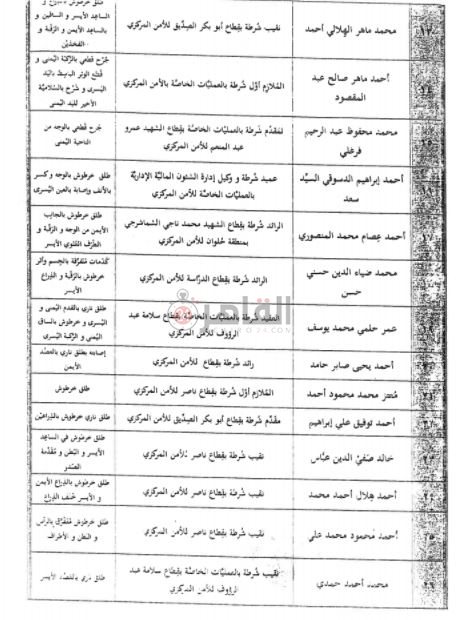 طلق خرطوش
الساعد الأيسر و الساقين و
بالساعد الأيمن و الرقبة و
الفخذين
نقيب شرطة بقطاع أبو بكر الصديق للأمن المركزي
محمد ماهر الهلالي أحمد
جرح قطعي بالركبة اليمنى و
الوتر الباسط باليد
اليسرى و شرخ بالسلامية
الأخير لليد اليمنى
الملازم أول شرطة بالعمليات الخاصة بالأمن المركزي
أحمد ماهر صالح عبد
المقصود
جرح قطعي بالوجه من
الناحية اليمنى
المقدم شرطة بالعمليات الخاصة بقطاع الشهيد عمرو
عبد المنعم للأمن المركزي
محمد محفوظ عبد الرحيم
فرغلي
طلق خرطوش بالوجه وكسر
بالأنف وإصابة بالعين اليسرى
عميد شرطة و وكيل إدارة الشئون المالية الإدارية
بالعمليات الخاصة للأمن المركزي
أحمد إبراهيم الدسوقي السيد
سعد
طلق خرطوش بالجانب
الأيمن من الوجه و الرقبة و
الطرف العلوي الأيسر
الرائد شرطة بقطاع الشهيد محمد ناجي الشماشرجي
بمنطقة حلوان للأمن المركزي
أحمد عصام محمد المنصوري
كدمات متفرقة بالجسم وأثر
خرطوش بالرقبة و الذراع
الأيسر
الرائد شرطة بقطاع الدراسة للأمن المركزي
محمد ضياء الدين حسني
حسن
طلق ناري بالقدم اليمنى و
اليسرى و خرطوش بالساق
اليمنى و الركبة اليسرى
العقيد شرطة بالعمليات الخاصة بقطاع سلامة عبد
الرؤوف للأمن المركزي
عمر حلمي محمد يوسف
إصابته بطلق ناري بالعضد
الأيمن
رائد شرطة بقطاع للأمن المركزي
أحمد يحيى صابر حامد
طلق خرطوش
الملازم أول شرطة بقطاع ناصر للأمن المركزي
معتز محمد محمود أحمد
طلق ناري خرطوش بالذراعين
مقدم شرطة بقطاع أبو بكر الصديق للأمن المركزي
أحمد توفيق علي إبراهيم
طلق خرطوش في الساعد
الأيسر و البطن و مقدمة
الصدر
نقيب شرطة بقطاع ناصر للأمن المركزي
خالد صفي الدين عباس
طلق خرطوش بالذراع الأيمن
و الأيسر خلف الذراع
نقيب شرطة بقطاع ناصر للأمن المركزي
أحمد هلال أحمد محمد
طلق خرطوش متفرق بالرأس
و البطن و الأطراف
نقيب شرطة بقطاع ناصر للأمن المركزي
أحمد محمود محمد علي
طلق ناري بالعضد الأيسر
نقيب شرطة بالعمليات الخاصة بقطاع سلامة عبد
الرؤوف للأمن المركزي
محمد أحمد حمدي